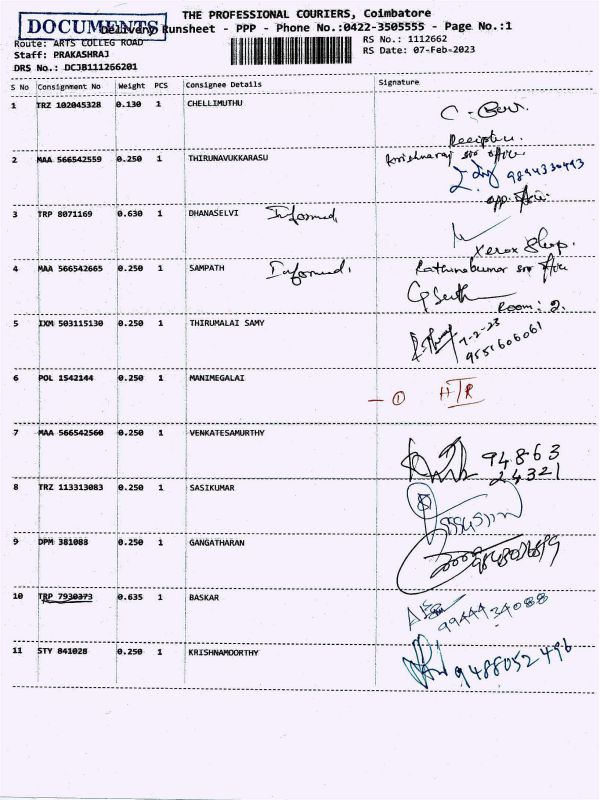 THE PROFESSIONAL COURIERS, Coimbatore
DOCUMENTS
Delivery Runsheet - PPP - Phone No.:0422-3505555 - Page No.:1
Route: ARTS COLLEG ROAD
RS No.: 1112662
Staff: PRAKASHRAJ
RS Date: 07-Feb-2023
DRS No.: DCJB111266201
S No Consignment No Weight PCS Consignee Details Signature
1 TRZ 102045328 0.130 1 CHELLIMUTHU
2 MAA 566542559 0.250 1 THIRUNAVUKKARASU
9894330493
3 TRP 8071169 0.630 1 DHANASELVI Informed
Xerox Shop.
4 MAA 566542665 0.250 1 SAMPATH Informed.
Room: 2.
5 IXM 503115130 0.250 1 THIRUMALAI SAMY
7-2-23
9551606061
6 POL 1542144 0.250 1 MANIMEGALAI
7 MAA 566542560 0.250 1 VENKATESAMURTHY
94863
24321
8 TRZ 113313083 0.250 1 SASIKUMAR
9 DPM 381088 0.250 1 GANGATHARAN
10 TRP 7930373 0.635 1 BASKAR
9944434088
11 STY 841028 0.250 1 KRISHNAMOORTHY
9488052496